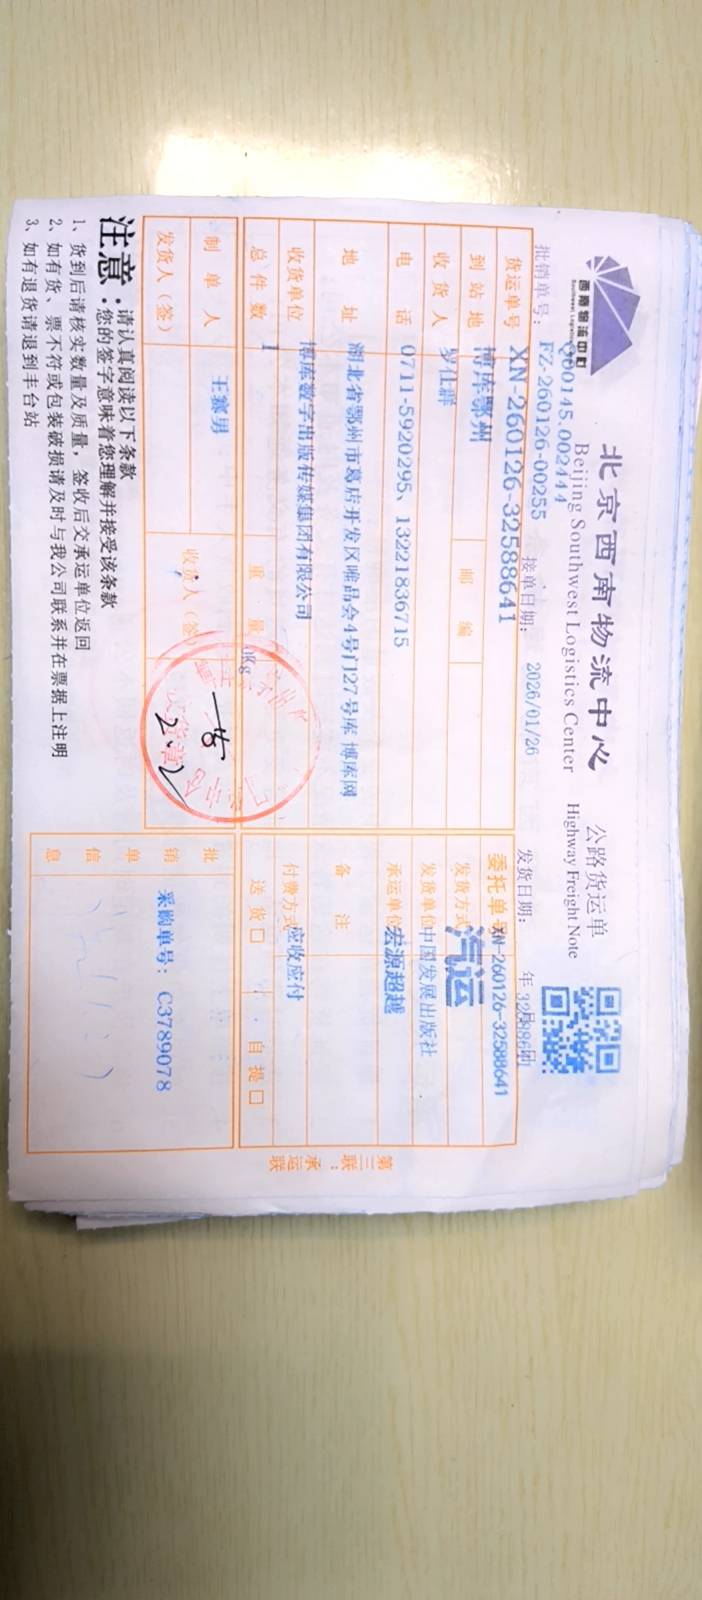 西南物流中心
Southwest Logistics
北京西南物流中心 公路货运单
Beijing Southwest Logistics Center Highway Freight Note
Q00145.002444
批销单号：FZ-260126-00255 接单日期：2026/01/26 发货日期： 年 月 日
货运单号 XN-260126-32588641 委托单号 XN-260126-32588641
到站地 博库鄂州 邮编 发货方式 汽运
收货人 罗仕群 发货单位 中国发展出版社
电话 0711-5920295、13221836715 承运单位 宏源超越
地址 湖北省鄂州市葛店开发区唯品会4号门127号库 博库网 备注
收货单位 博库数字出版传媒集团有限公司 付费方式 应收应付
总件数 1 重量 0Kg 送货□ 自提□
制单人 王寨男 收货人（签） 批销单信息 采购单号：C3789078
发货人（签）
一步
2.2
收货章
第三联：承运联
注意：请认真阅读以下条款
您的签字意味着您理解并接受该条款
1、货到后请核实数量及质量，签收后交承运单位返回
2、如有货、票不符或包装破损请及时与我公司联系并在票据上注明
3、如有退货请退到丰台站